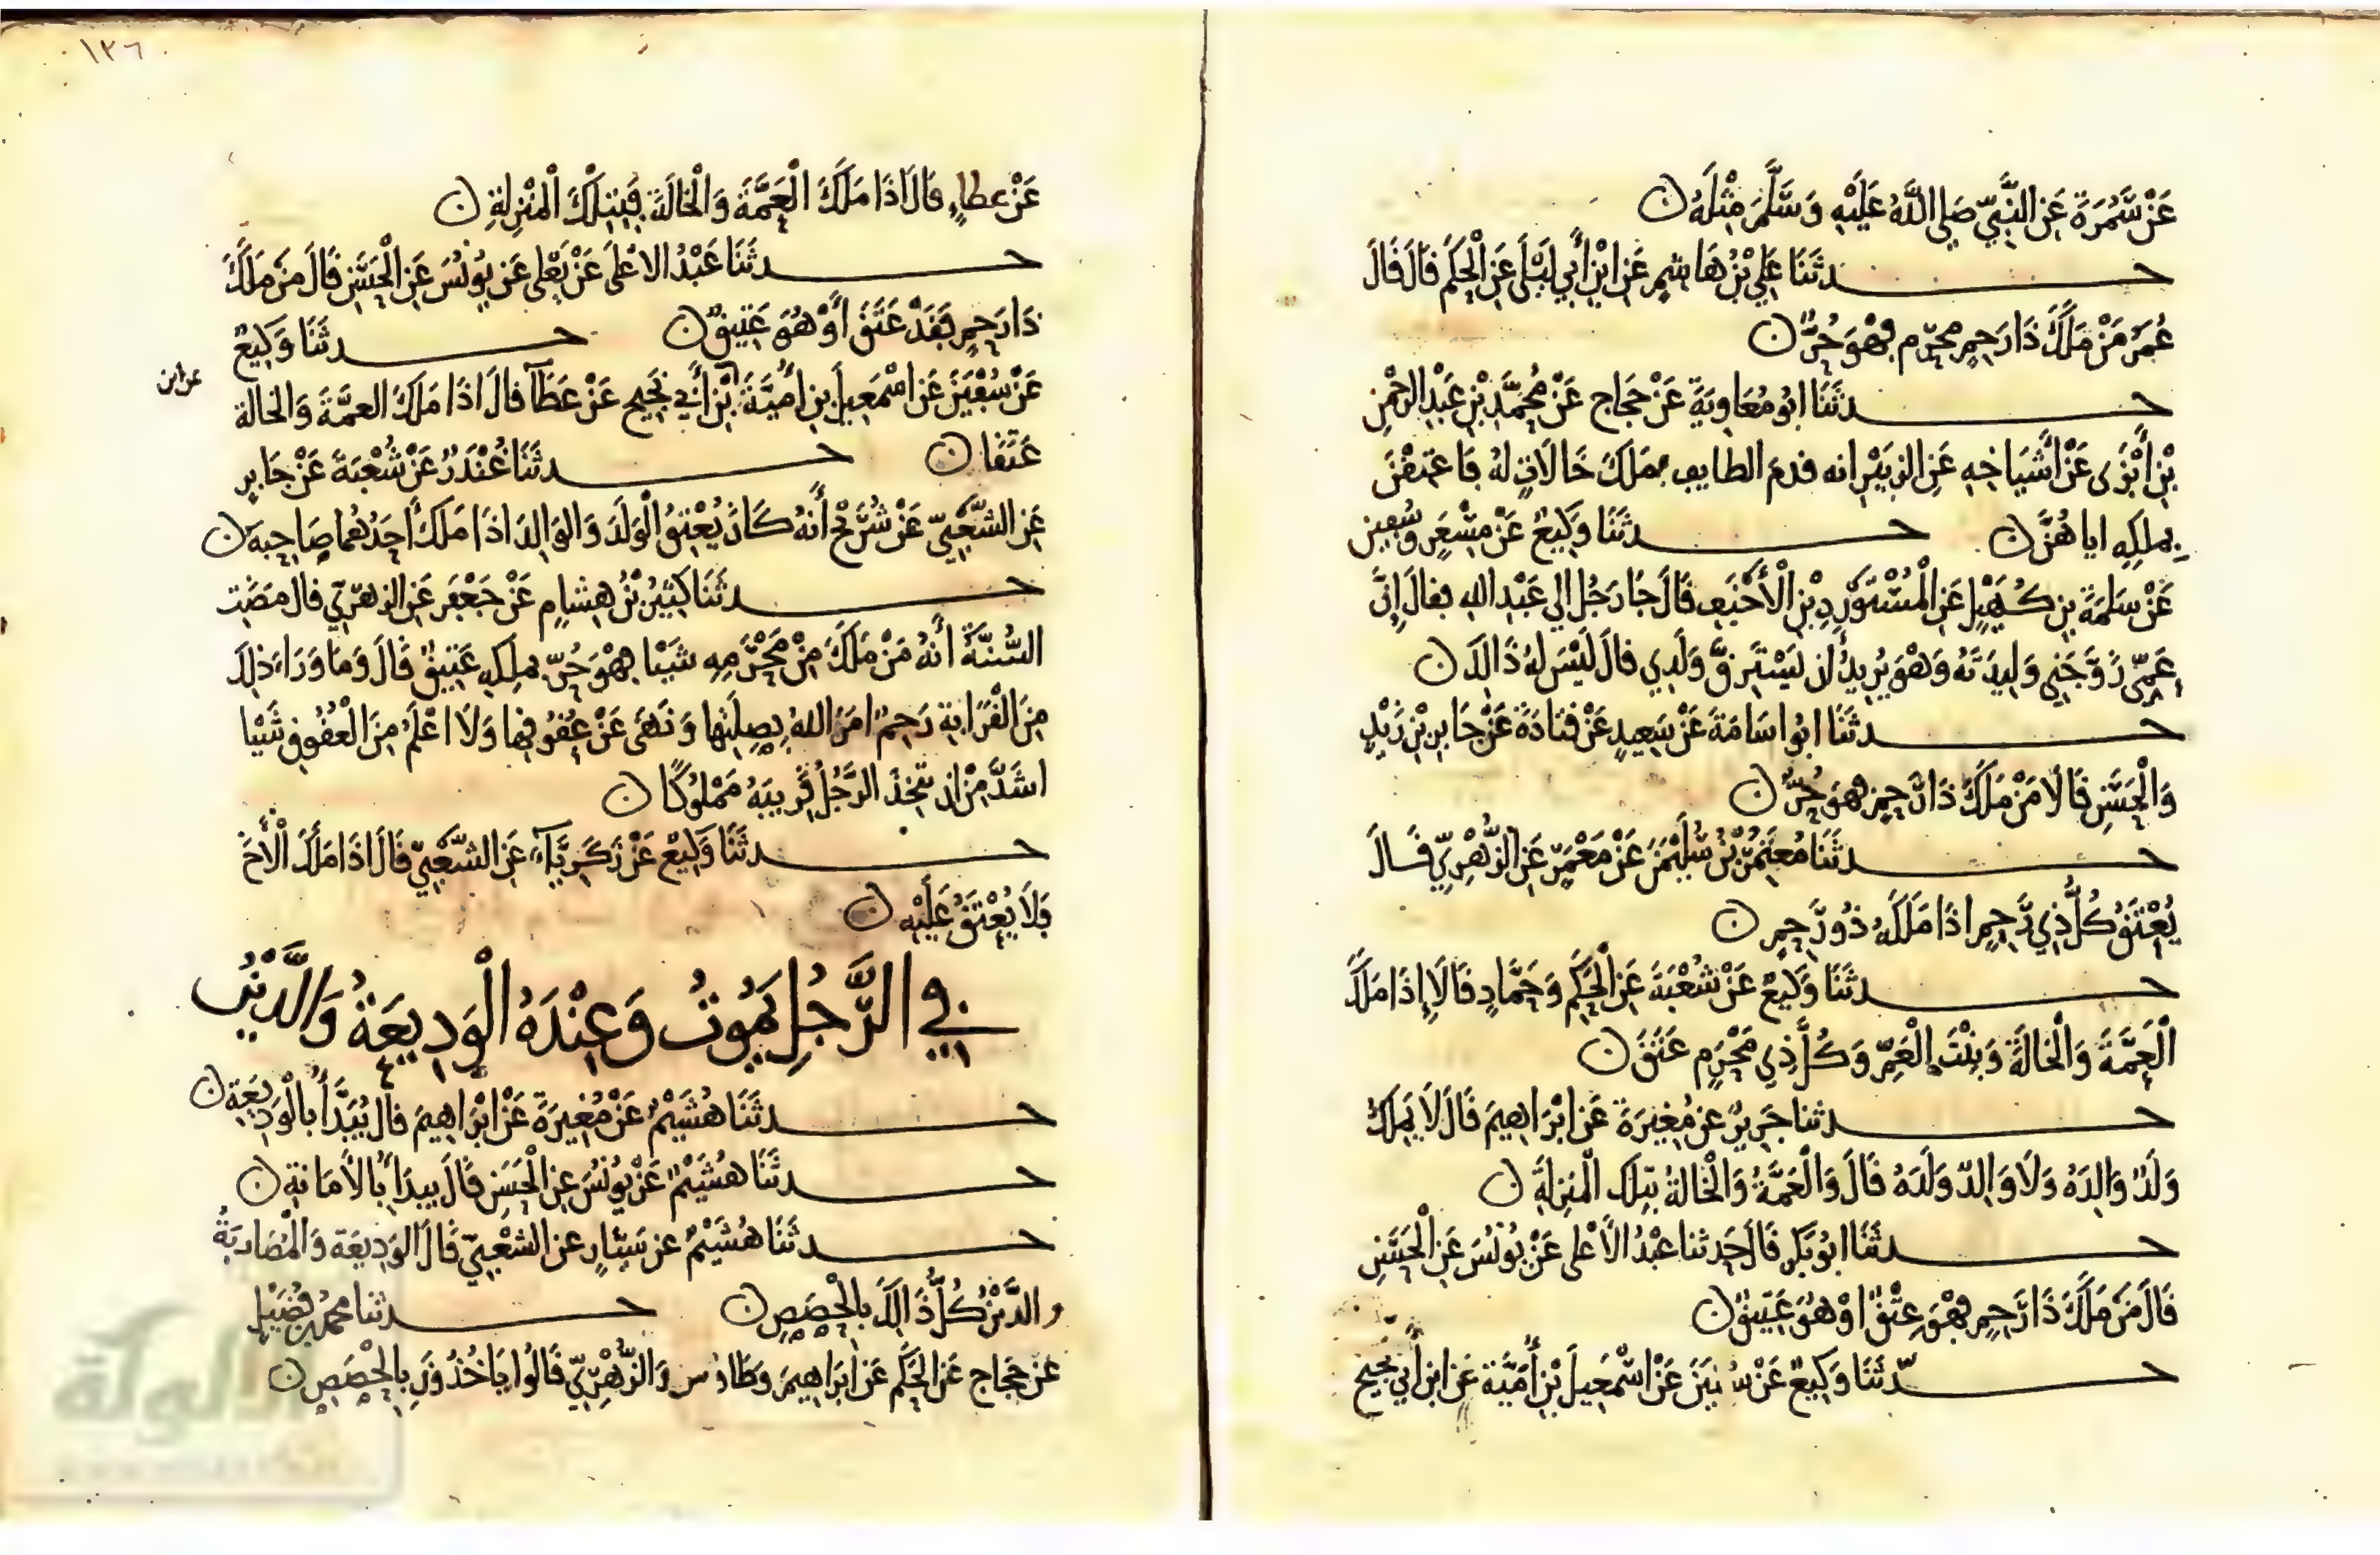 عَنْ سَمُرَةَ عَنِ النَّبِيِّ صَلى اللَّهُ عَلَيْهِ وَسَلَّمَ مِثْلَهُ ن
حـــدثَنَا عَلِي بْنُ هَاشِمٍ عَنِ ابْنِ أَبِي لَيْلَى عَنِ الْحَكَم قَالَ قَالَ
عُمَرَ مَنْ مَلَكَ ذَا رَحِمٍ مَحْرَم فَهْوَ حُرٌّ ن
حـــدثَنَا ابُو مُعَاوِيَةَ عَنْ حَجَاج عَنْ مُحَمَّدِ بْنِ عَبْدِ الرَّحْمٰنِ
بْنِ أَبْزَى عَنْ أَشْيَاخِهِ عَنِ الزبَيْرِ انه قدمَ الطايف فمَلَكَ خَالَاتٍ لهُ فَاعتِقْنَ
بِملكِهِ اياهُنَّ ن حـــدثَنَا وَكِيعٌ عَنْ مِسْعَرٍ وَسُفين
عَنْ سَلمَةَ بنِ كُهَيْلٍ عَنِ الْمُسْتَوْرِدِ بْنِ الْأَحْنَفِ قَالَ جَا رَجُل الي عَبْد الله فقالَ إِنَّ
عَمِّى زَوَّجَنِي وَلِيدَتَهُ وَهْوَ يُرِيدُ ان يَسْتَرِقَّ وَلَدِي قالَ لَيْسَ لهُ ذَالكَ ن
حـــدثَنَا ابُو اسَامَةَ عَنْ سَعِيدٍ عَنْ قتادَةَ عَنْ جَابِرِ بْنِ زَيْدٍ
وَالْحَسَنِ قَالَا مَنْ مَلَكَ ذَا رَّحِمٍ فهوَ حُرٌّ ن
حـــدثَنَا مُعتَمِرُ بْنُ سُلَيْمٰنَ عَنْ مَعْمَرٍ عَنِ الزُّهْرِيّ قَـالَ
يُعْتَقُ كُلُّ ذِي رَّحِمٍ اذَا مَلَكَهُ ذُو رَّحِمٍ ن
حـــدثَنَا وَكِيعٌ عَنْ شُعْبَةَ عَنِ الْحَكَمِ وَحَمَّادٍ قَالَا إِذَا مَلَكَ
الْعَمَّةَ وَالْخَالَةَ وَبِنْتَ الْعَمِّ وَكُلَّ ذِي مَحْرَمٍ عَتَقَ ن
حـــدثنا جَرِيرٌ عن مُغِيرَةَ عَنِ ابْرَاهِيمَ قَالَ لَا يَمْلِكُ
وَلَدٌ وَالِدَهُ وَلَا وَالِدٌ وَلَدَهُ قَالَ وَالْعَمَّةُ وَالْخَالَةُ بتِلكَ الْمَنزِلَةِ ن
حـــدثَنَا ابُو بَكْرٍ قَالَ حَدثنا عَبْدُ الأَعْلى عَنْ يُونُسَ عَنِ الْحَسَنِ
قَالَ مَنْ مَلَكَ ذَا رَّحِمٍ فَهْوَ عِتْقٌ اوْ هُوَ عَتِيقٌ ن
حـــدّثَنَا وَكِيعٌ عَنْ سُفيَنَ عَنْ اسْمٰعِيلَ بْنِ أُمَيَّةَ عَنِ ابنِ أَبِي نَجِيح
١٣٦
عَنْ عطاءٍ قَالَ اذَا مَلَكَ الْعَمَّةَ وَالْخَالَةَ فَبِتِلْكَ الْمَنْزِلةِ ن
حـــدثَنَا عَبْدُ الاعْلَى عَنْ يَعْلى عَن يُونُسَ عَنِ الْحَسَنِ قَالَ مَنْ مَلَكَ
ذَا رَحِمٍ فَقَدْ عَتَقَ أَوْ هُوَ عَتِيقٌ ن حـــدثَنَا وَكِيعٌ
عَنْ سُفْيَنَ عَنِ اسْمٰعِيلَ بنِ امَيَّةَ بْنِ أَبي نَجِيحٍ عَنْ عَطَآ قَالَ اذَا مَلَكَ العمَّةَ وَالخالَة
عن ابن
عَتَقَا ن حـــدثَنَا غُنْدَرٌ عَنْ شُعْبَةَ عَنْ جَابِرٍ
عَنِ الشَّعْبِيِّ عَنْ شُرَيْحٍ أَنهُ كَانَ يُعْتِقُ الْوَلَدَ وَالوَالِدَ اذَا مَلَكَ أَحَدُهُمَا صَاحِبَهُ ن
حـــدثَنَا كَثِيرُ بْنُ هِشَامٍ عَنْ جَعْفَرٍ عَنِ الزهْرِيّ قالَ مَضَتِ
السُّنَّةُ انَّهُ مَنْ مَلَكَ مِنْ مَحْرَمِهِ شَيْئا فَهْوَ حُرّ بملكِهِ عَتِيقٌ قَالَ وَمَا وَرَاءَ ذلِكَ
مِنَ الْقَرَابَةِ رَحِمٌ امَرَ اللهُ بِصِلَتِهَا وَنَهَى عَنْ عقُوقِهَا وَلَا اعْلَمُ مِنَ الْعُقُوقِ شَيْئا
اشَدَّ مِنْ ان يَتَّخِذَ الرَّجُلُ قَرِيبَهُ مَمْلُوكًا ن
حـــدثَنَا وَكِيعٌ عَنْ زَكَرِيَّآءَ عَنِ الشَّعْبِيّ قَالَ اذَا مَلَكَ الْأَخَ
فَلَا يُعْتَقُ عَلَيْهِ ن
فِي الرَّجُلِ يَمُوتُ وَعِنْدَهُ الْوَدِيعَةُ وَالدَّيْنُ
حـــدثَنَا هُشَيْمٌ عَنْ مُغِيرَةَ عَنْ ابْرَاهِيمَ قَالَ يُبَدَّأُ بالْوَدِيعَةِ ن
حـــدثَنَا هُشَيْمٌ عَنْ يُونُسَ عَنِ الْحَسَنِ قَالَ يبدَأ بالأَمَانَةِ ن
حـــدثَنَا هُشَيْمٌ عن سَيَّارٍ عن الشعْبِيّ قَالَ الوَدِيعَة وَالْمُضَارَبَةُ
والدَّيْنُ كُلُّ ذَالِكَ بِالْحِصَصِ ن حـــدثنا محمد بن فُضَيْلٍ
عَنْ حَجَّاج عَنِ الْحَكَم عَنِ ابَرَاهِيمَ وطَاوس وَالزُّهْرِيِّ قَالُوا يَاخُذُونَ بِالْحِصَصِ ن
الألوكة